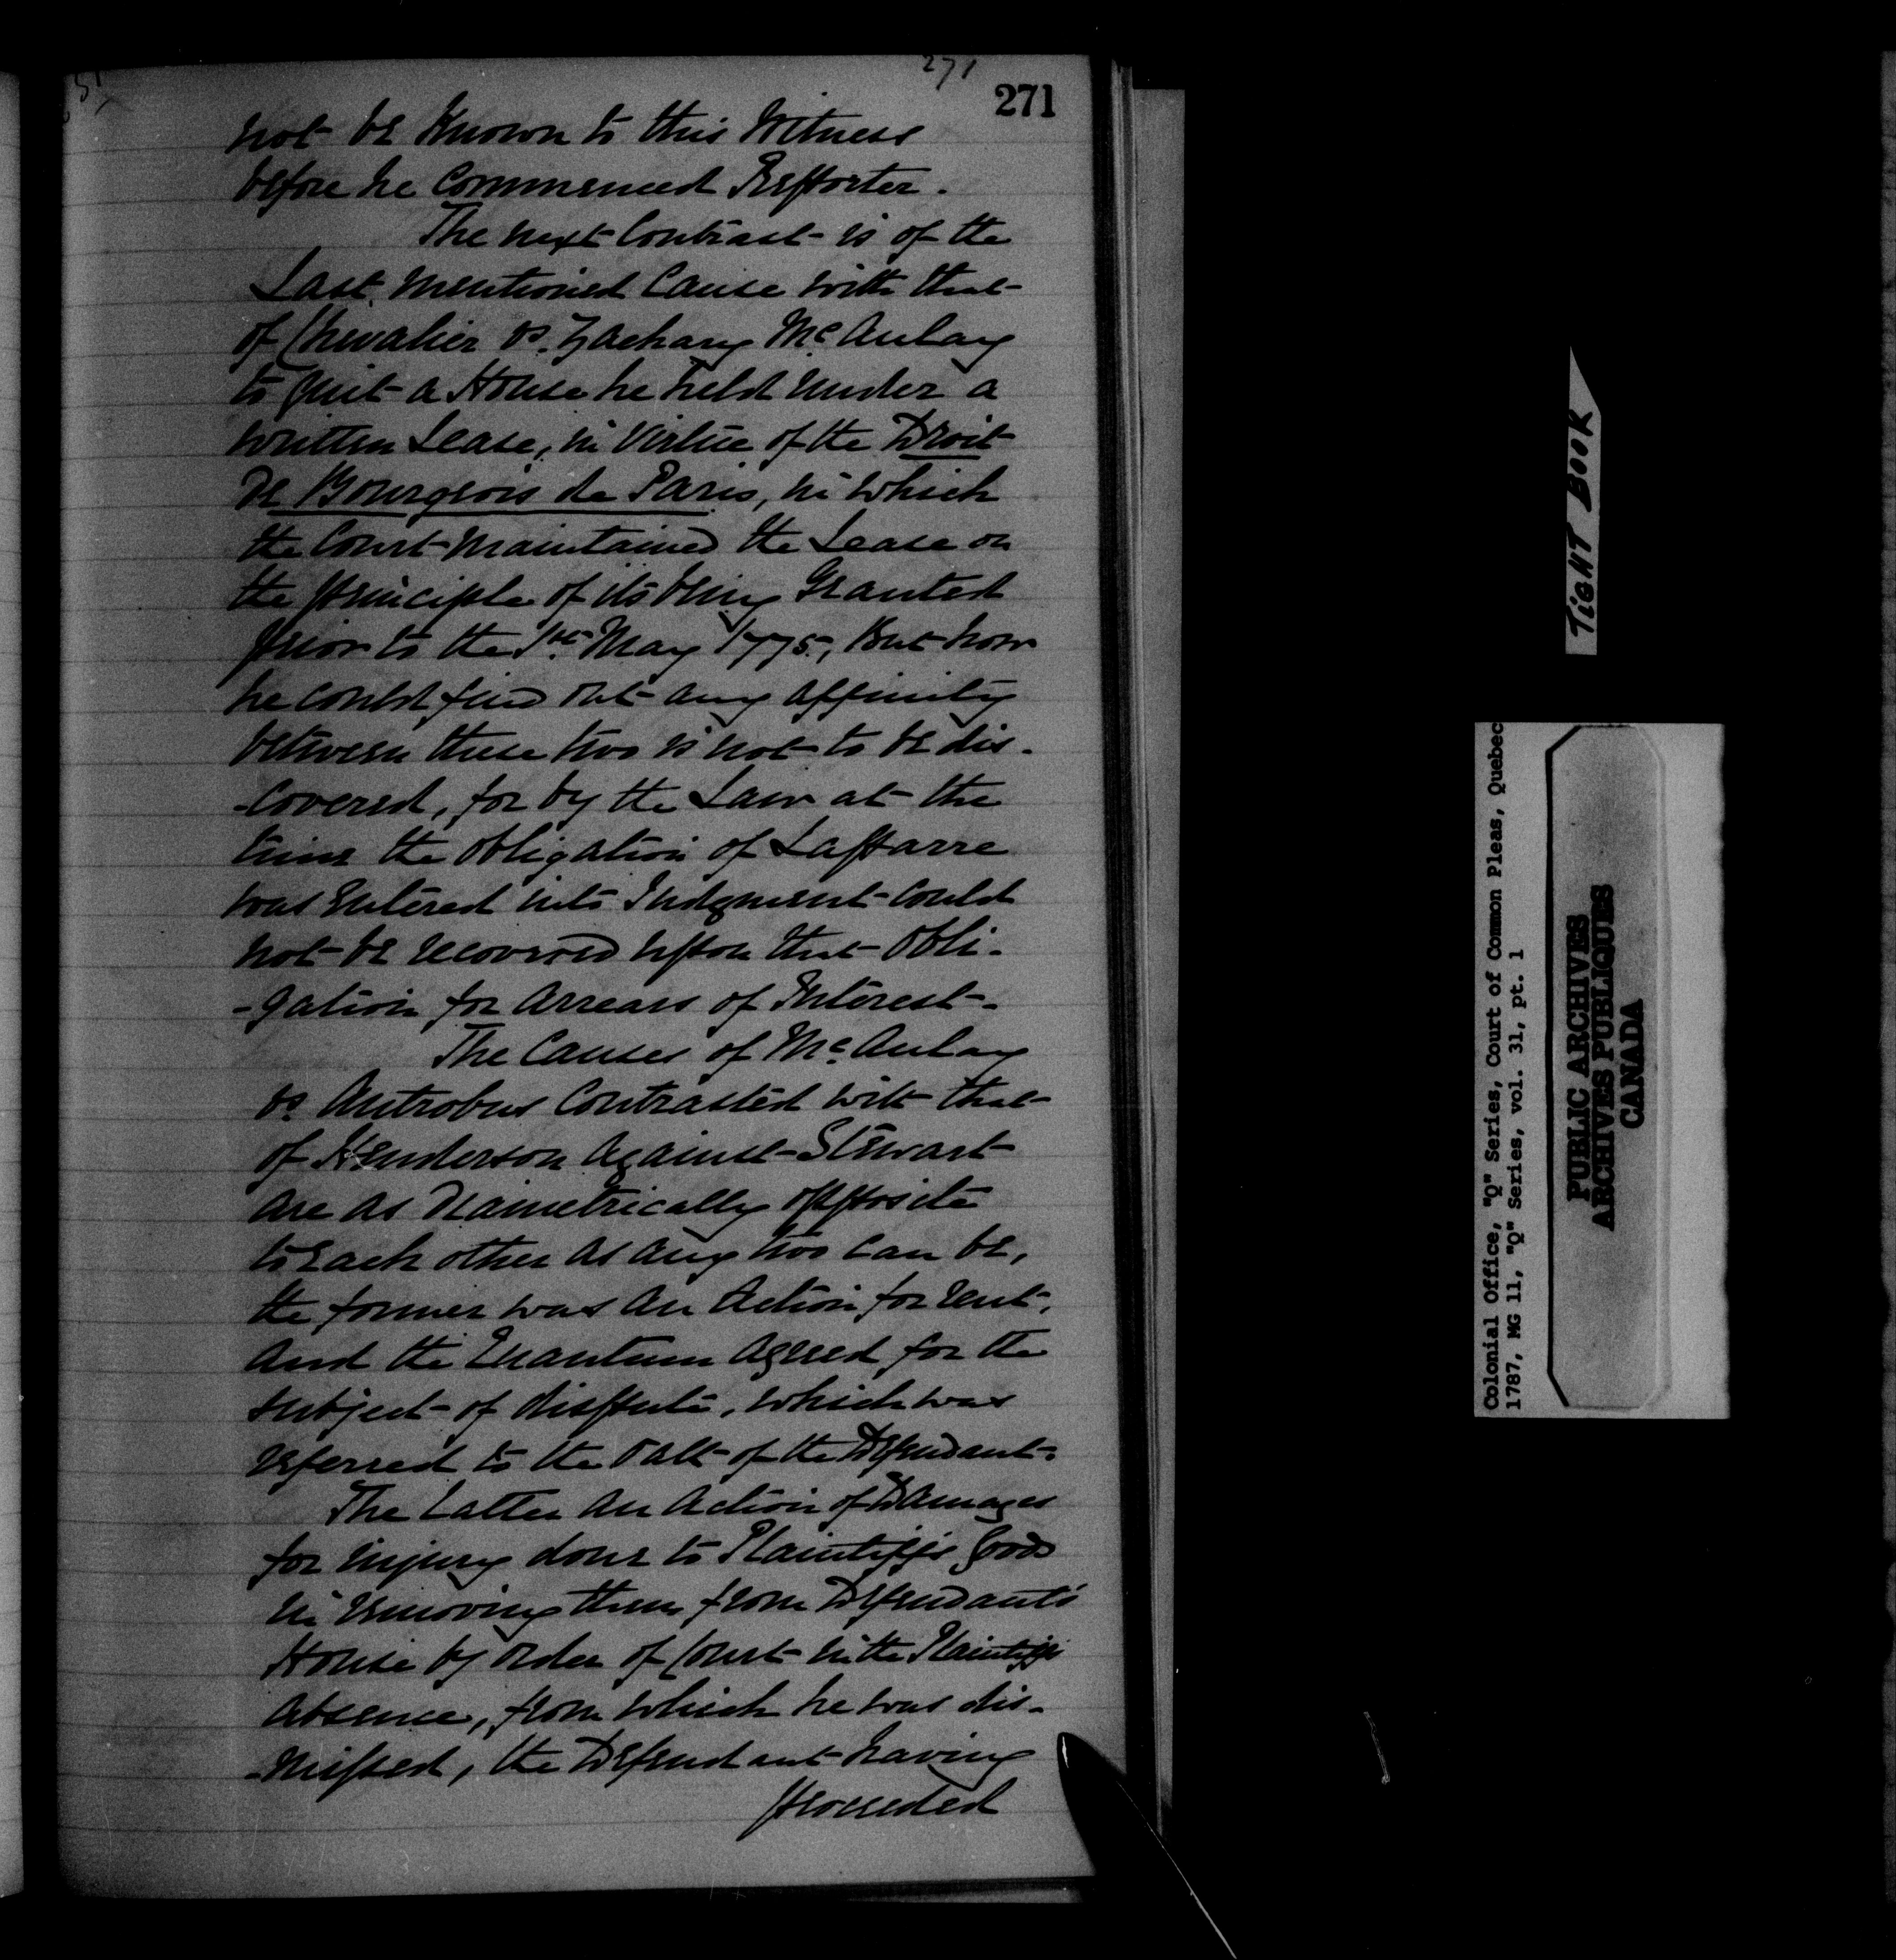 271
271
not be known to this Witness
before he Commenced Reporter.
The next Contrast is of the
Last mentioned Cause with that
of Chevalier vs. Zachary McAulay
to quit a House he held under a
written Lease, in Virtue of the Droit
De Bourgeois de Paris, in which
the Court maintained the Lease on
the principle of its being Granted
prior to the 1st May 1775, But how
he could find out any affinity
between these two is not to be dis-
-covered, for by the Law at the
time the obligation of Laparre
was Entered into Judgment could
not be recovered upon that Obli-
-gation for Arrears of Interest.
The Causes of McAulay
vs Antrobus Contrasted with that
of Henderson Against Stewart
are as Diametrically opposite
to each other as any two can be,
the former was an Action for rent,
And the Quantum Agreed for the
subject of dispute, which was
referred to the Oath of the Defendant.
The Latter an Action of Damages
for injury done to Plaintiffs Goods
in removing them from Defendant's
House by order of Court in the Plaintiffs
Absence, from which he was dis-
-missed, the Defendant having
proceeded
TIGHT BOOK
Colonial Office, "Q" Series, Court of Common Pleas, Quebec
1787, MG 11, "Q" Series, vol. 31, pt. 1
PUBLIC ARCHIVES
ARCHIVES PUBLIQUES
CANADA